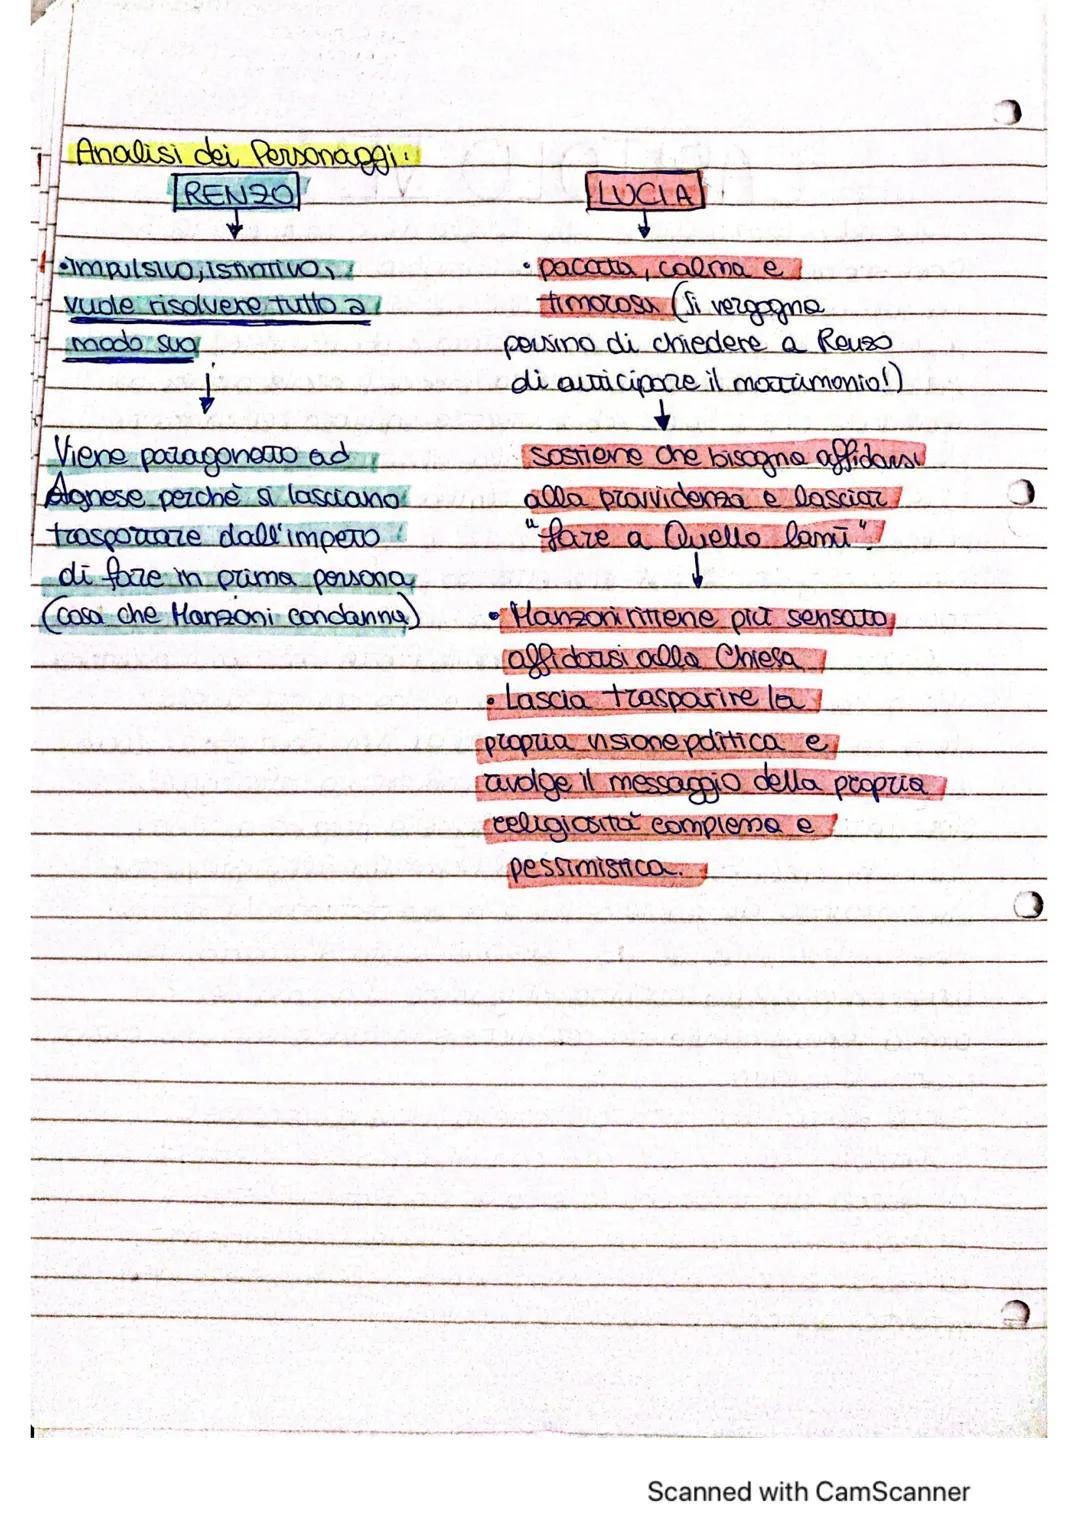 Analisi dei Personaggi:
RENZO
•Impulsivo, istintivo,
vuole risolvere tutto a
modo suo
Viene paragonato ad
Agnese perchè si lasciano
trasportare dall'impeto
di fare in prima persona
(cosa che Manzoni condanna)
LUCIA
• pacata, calma e
timorosa (Si vergogna
persino di chiedere a Renzo
di anticipare il matrimonio!)
sostiene che bisogna affidarsi
alla provvidenza e lasciar
"fare a Quello lassù".
• Manzoni ritiene più sensato
affidarsi alla Chiesa
• Lascia trasparire la
propria visione politica e
rivolge il messaggio della propria
religiosità complessa e
pessimistica.
Scanned with CamScanner